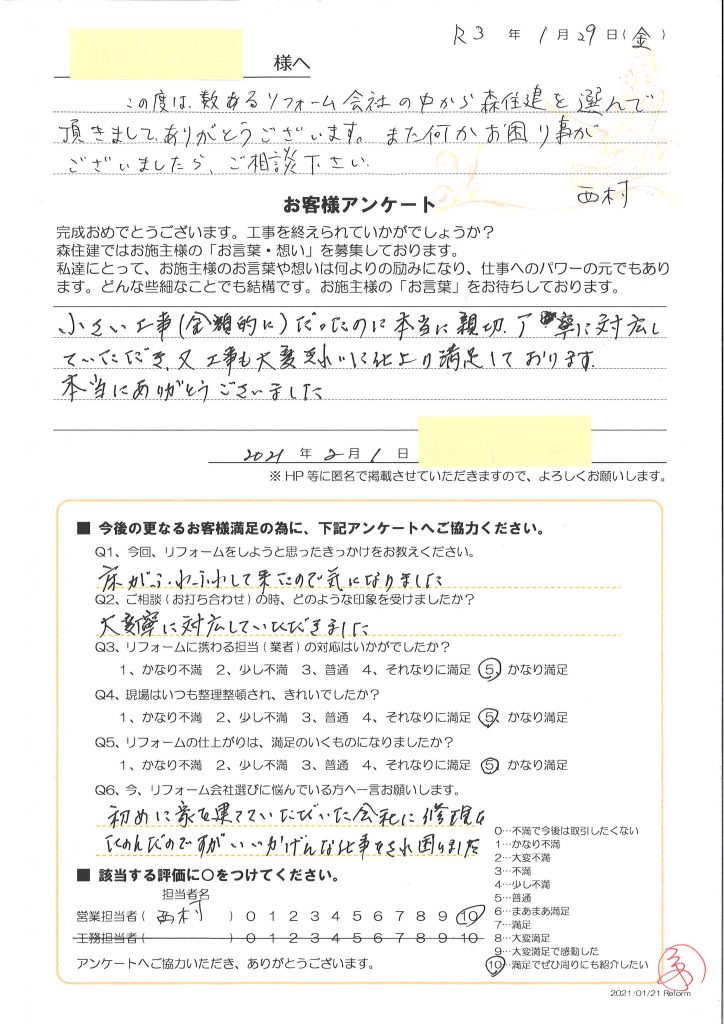 R3 年 1月 29日(金)
様へ
この度は、数あるリフォーム会社の中から森住建を選んで
頂きまして、ありがとうございます。また何かお困り事が
ございましたら、ご相談下さい。
西村
お客様アンケート
完成おめでとうございます。工事を終えられていかがでしょうか?
森住建ではお施主様の「お言葉・想い」を募集しております。
私達にとって、お施主様のお言葉や想いは何よりの励みになり、仕事へのパワーの元でもあり
ます。どんな些細なことでも結構です。お施主様の「お言葉」をお待ちしております。
小さい工事(金額的に)だったのに本当に親切、丁寧に対応し
ていただき、又工事も大変きれいに仕上り満足しております。
本当にありがとうございました
2021 年 2月 1日
※HP等に匿名で掲載させていただきますので、よろしくお願いします。
■ 今後の更なるお客様満足の為に、下記アンケートへご協力ください。
Q1、今回、リフォームをしようと思ったきっかけをお教えください。
床がふわふわして来たので気になりました
Q2、ご相談(お打ち合わせ)の時、どのような印象を受けましたか?
大変寧に対応していただきました
Q3、リフォームに携わる担当(業者)の対応はいかがでしたか?
1、かなり不満 2、少し不満 3、普通 4、それなりに満足 5、かなり満足
Q4、現場はいつも整理整頓され、きれいでしたか?
1、かなり不満 2、少し不満 3、普通 4、それなりに満足 5、かなり満足
Q5、リフォームの仕上がりは、満足のいくものになりましたか?
1、かなり不満 2、少し不満 3、普通 4、それなりに満足 5、かなり満足
Q6、今、リフォーム会社選びに悩んでいる方へ一言お願いします。
初めに家を建てていただいた会社に修理を
たのんだのですがいいかげんな仕事をされ困りました
■ 該当する評価に〇をつけてください。
担当者名
営業担当者( 西村 ) 0 1 2 3 4 5 6 7 8 9 10
工務担当者( ) 0 1 2 3 4 5 6 7 8 9 10
アンケートへご協力いただき、ありがとうございます。
0…不満で今後は取引したくない
1…かなり不満
2…大変不満
3…不満
4…少し不満
5…普通
6…まあまあ満足
7…満足
8…大変満足
9…大変満足で感動した
10…満足でぜひ周りにも紹介したい
2021/01/21 Reform